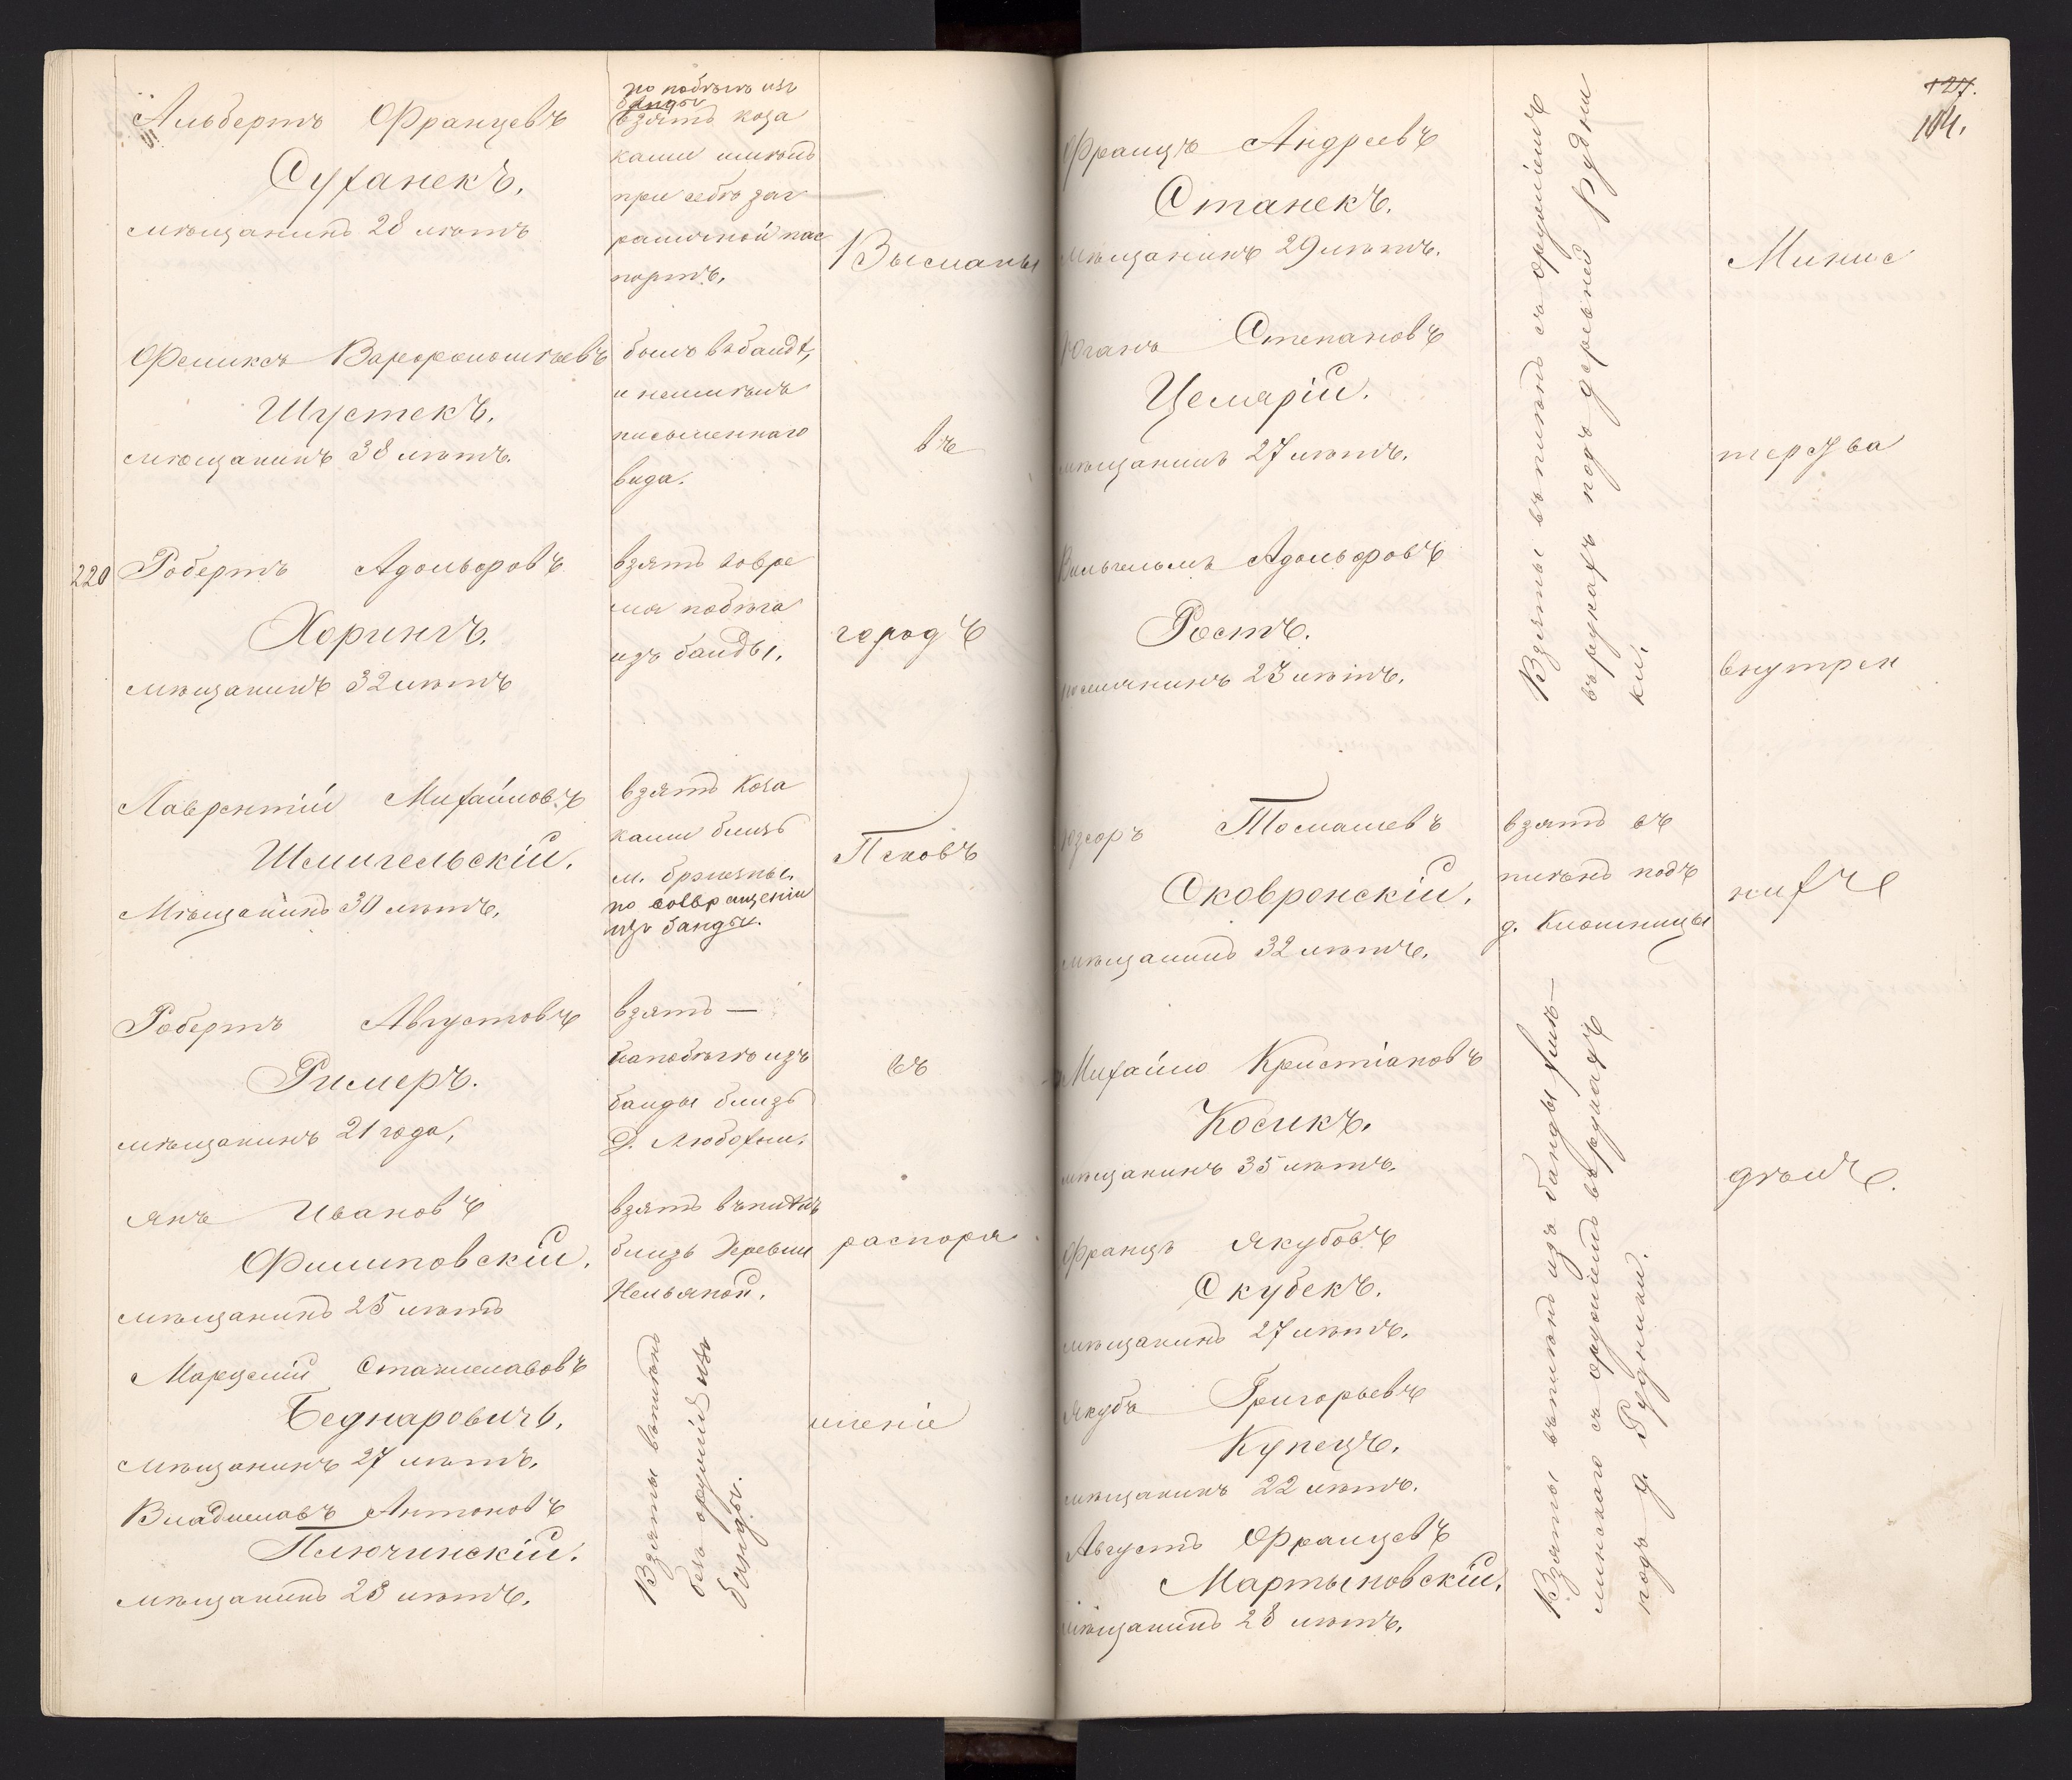 Альбертъ Францевъ
Суханекъ.
мѣщанинъ 28 лѣтъ
по побѣгѣ изъ
банды
взятъ коза
ками имѣлъ
при себѣ заг
раничной пас
портъ.
Высланы
Феликсъ Варфоломѣевъ
Шустекъ.
мѣщанинъ 38 лѣтъ.
былъ въ бандѣ,
и неимѣлъ
письменнаго
вида.
въ
220
Робертъ Адольфовъ
Хорингъ.
мѣщанинъ 32 лѣтъ
взятъ вовре
мя побѣга
изъ банды.
городъ
Лаврентій Михайловъ
Шмигельскій.
Мѣщанинъ 30 лѣтъ.
взятъ Коза
ками близъ
м.
по возвращеніи
изъ банды.
Псковъ
Робертъ Августовъ
Римеръ.
мѣщанинъ 21 года,
взятъ —
по побѣгѣ изъ
банды близъ
Д. Любохни.
въ
Янъ Ивановъ
Филиповскій.
мѣщанинъ 25 лѣтъ
взятъ въ плѣнъ
близъ деревни
распоря
Марцелій Станиславовъ
Беднаровичъ.
мѣщанинъ 27 лѣтъ.
Владиславъ Антоновъ
Плючинскій.
мѣщанинъ 28 лѣтъ.
Взяты въ плѣнъ
безъ оружія изъ
банды.
женіе
127.
104.
Францъ Андреевъ
Станекъ.
мѣщанинъ 29 лѣтъ.
Юганъ Степановъ
Целярій.
мѣщанинъ 27 лѣтъ.
Вильгельмъ Адольфовъ
Ростъ.
23 лѣтъ.
Взяты въ плѣнъ съ оружіемъ
въ рукахъ подъ деревней Рудни
ки.
Минис
терства
внутрен
Юзефъ Томашевъ
Сковронскій.
мѣщанинъ 32 лѣтъ.
взятъ въ
плѣнъ подъ
д.
нихъ
Михайло Кристіановъ
Косикъ.
мѣщанинъ 35 лѣтъ.
дѣлъ.
Францъ Якубовъ
Скубекъ.
мѣщанинъ 27 лѣтъ.
Якубъ Григорьевъ
Купецъ.
мѣщанинъ 22 лѣтъ.
Августъ Францевъ
Мартыновскій.
мѣщанинъ 28 лѣтъ.
Взяты въ плѣнъ изъ банды Хмѣ—
линскаго съ оружіемъ въ рукахъ
подъ д. Рудники.